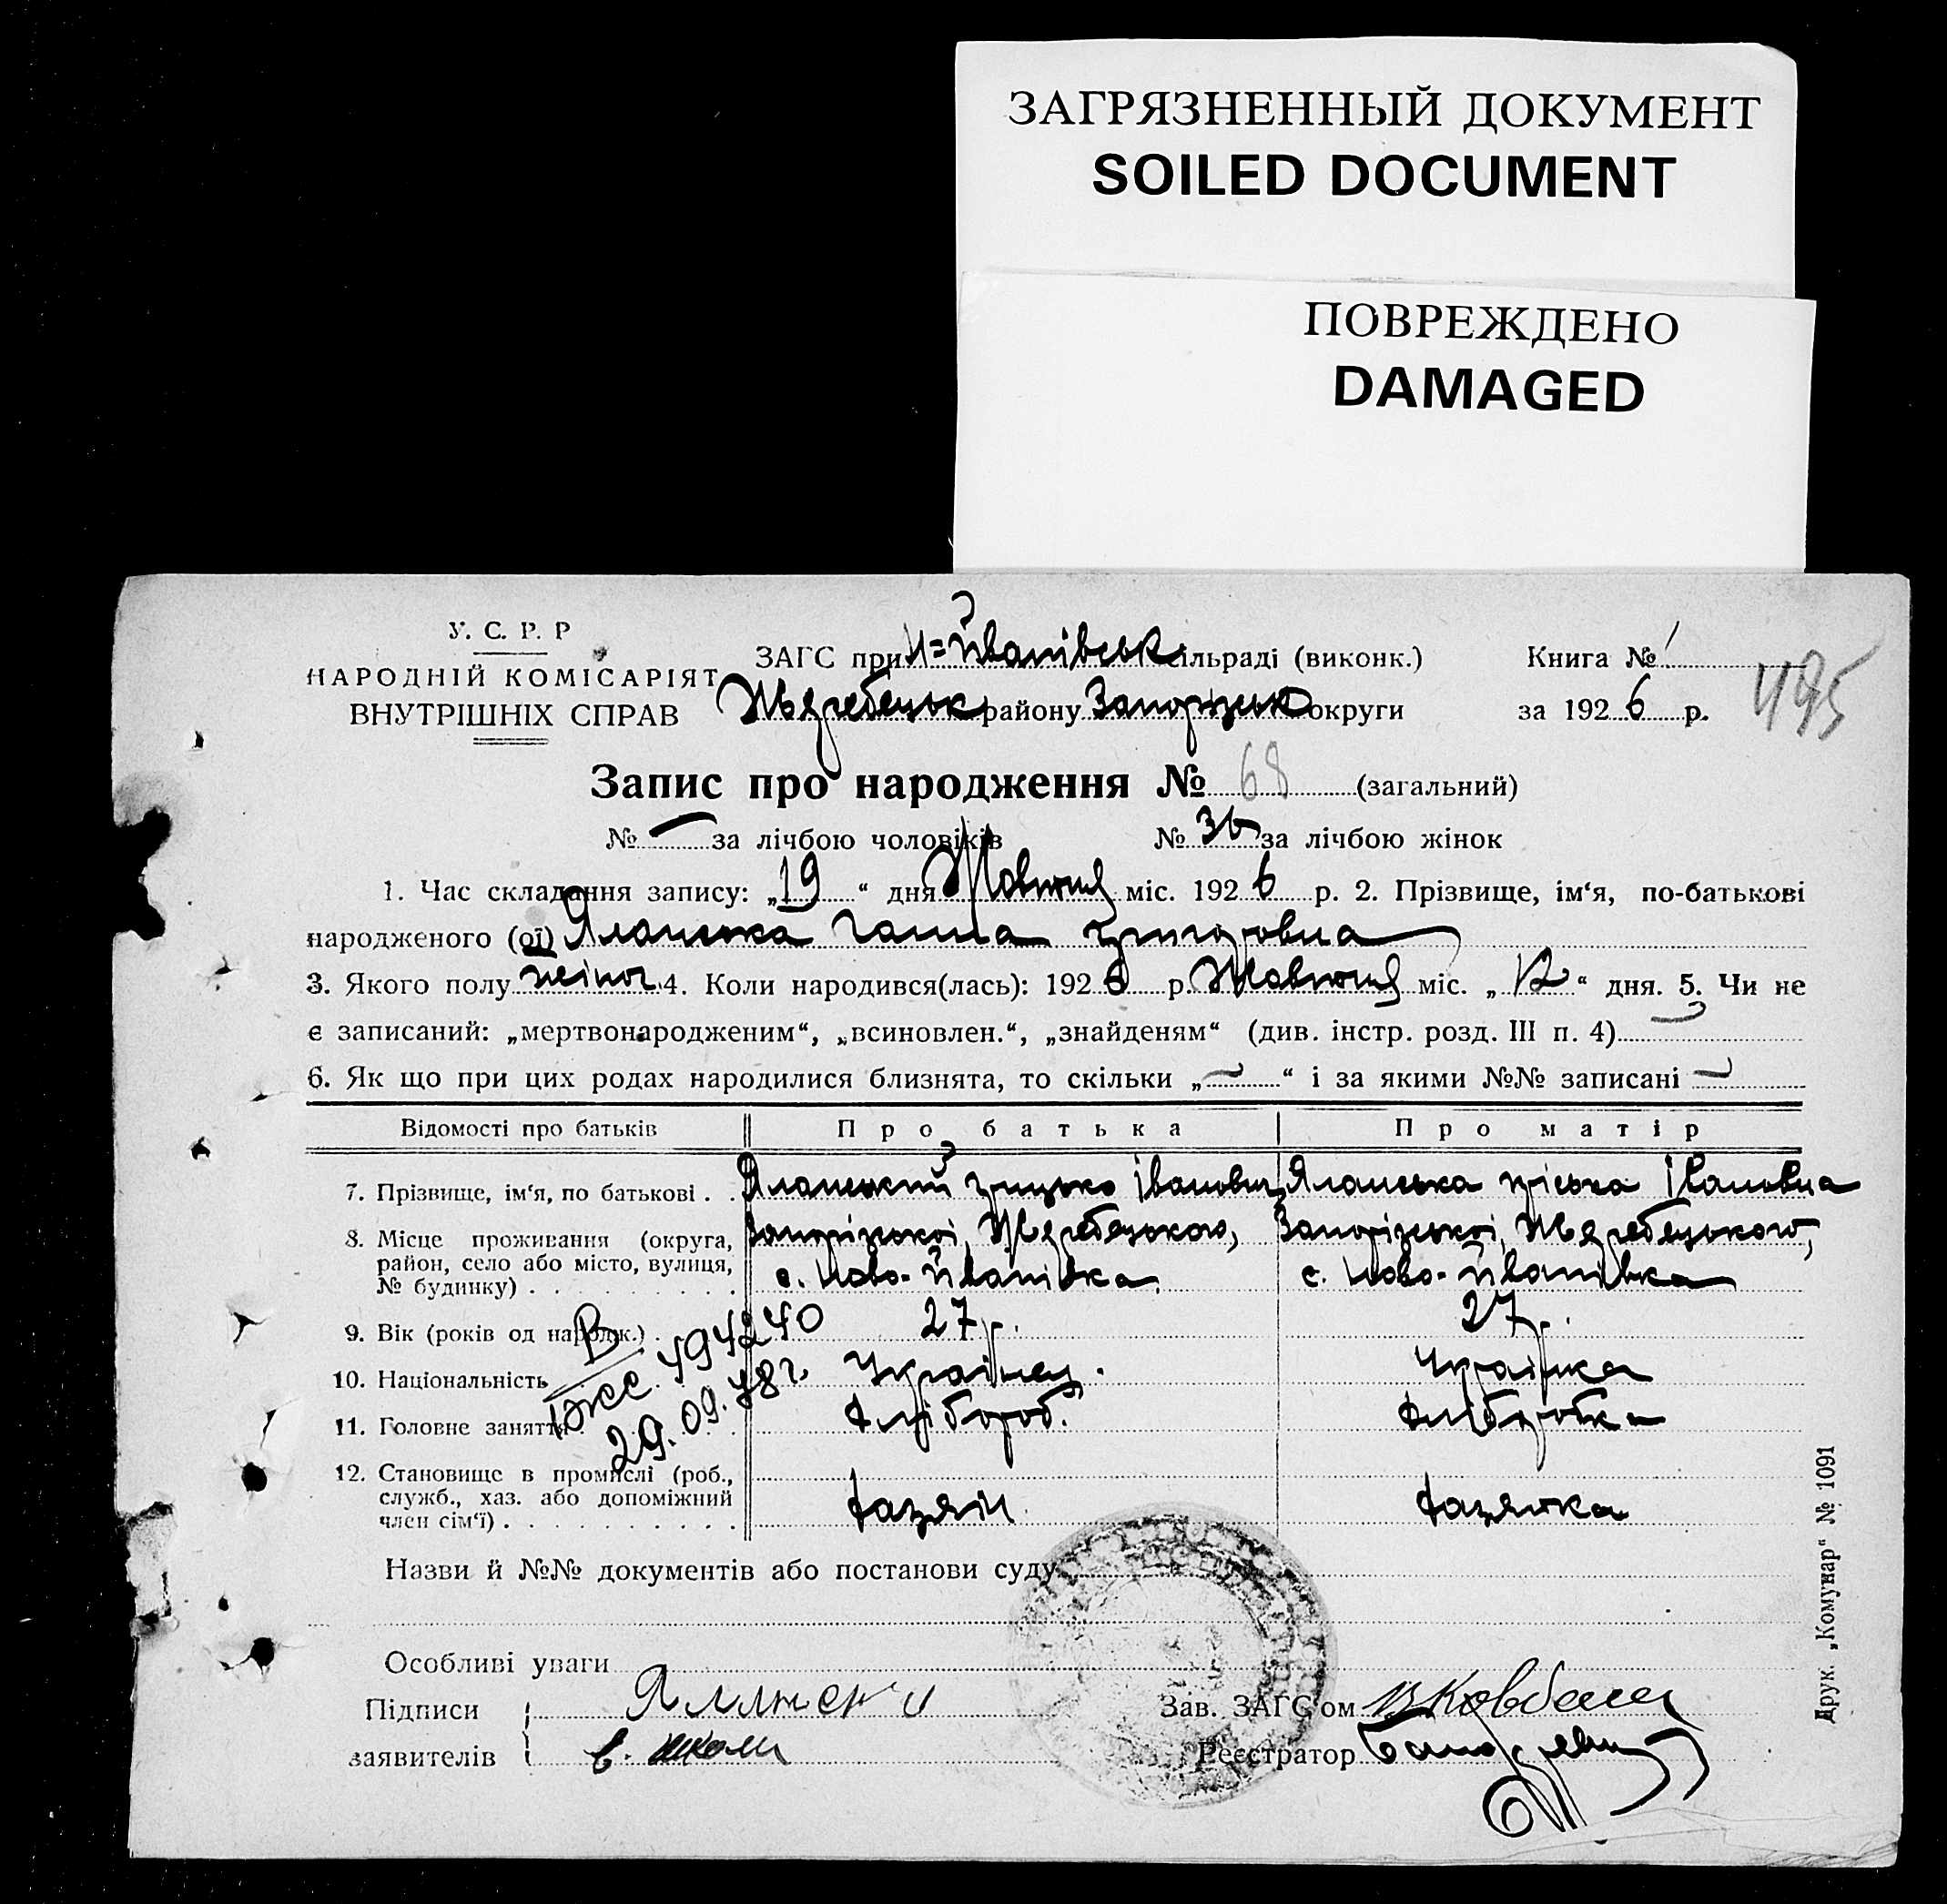 ЗАГРЯЗНЕННЫЙ ДОКУМЕНТ
SOILED DOCUMENT
ПОВРЕЖДЕНО
DAMAGED
У. С. Р. Р
НАРОДНІЙ КОМІСАРІЯТ
ВНУТРІШНІХ СПРАВ
ЗАГС при Н=Йванівськ сільраді (виконк.) Книга № 1
Жеребецьк району Запоріжськ округи за 1926 р. 495
Запис про народження № 68 (загальний)
№ — за лічбою чоловіків № 36 за лічбою жінок
1. Час складання запису: „19“ дня Жовтня міс. 1926 р. 2. Прізвище, ім‘я, по-батькові
народженого (ої) Яланська Ганна Григоровна
3. Якого полу жіноч 4. Коли народився(лась): 1926 р. Жовтня міс. „12“ дня. 5. Чи не
є записаний: „мертвонародженим“, „всиновлен.“, „знайденям“ (див. інстр. розд. III п. 4)
6. Як що при цих родах народилися близнята, то скільки „—“ і за якими №№ записані —
Відомості про батьків Про батька Про матір
7. Прізвище, ім‘я, по батькові . . Яланський Грицько Іванович Яланська Пріська Івановна
8. Місце проживання (округа, район, село або місто, вулиця, № будинку) . . . . . . . . . Запорізької, Жеребецького, Запорізької, Жеребецького,
с. Ново-Йванівка с. Ново-Йванівка
9. Вік (років од народж.) . 27 р. 27 р.
10. Національність Українец. Українка
11. Головне заняття Хлібороб. Хліборобка
12. Становище в промислі (роб., служб., хаз. або допоміжний член сім‘ї) . . . . . . . . . . Хазяін Хазяйка
29.09.78 г.
Назви й №№ документів або постанови суду
Особливі уваги
Підписи Зав. ЗАГС‘ом
заявителів Реєстратор
Друк. „Комунар“ № 1091